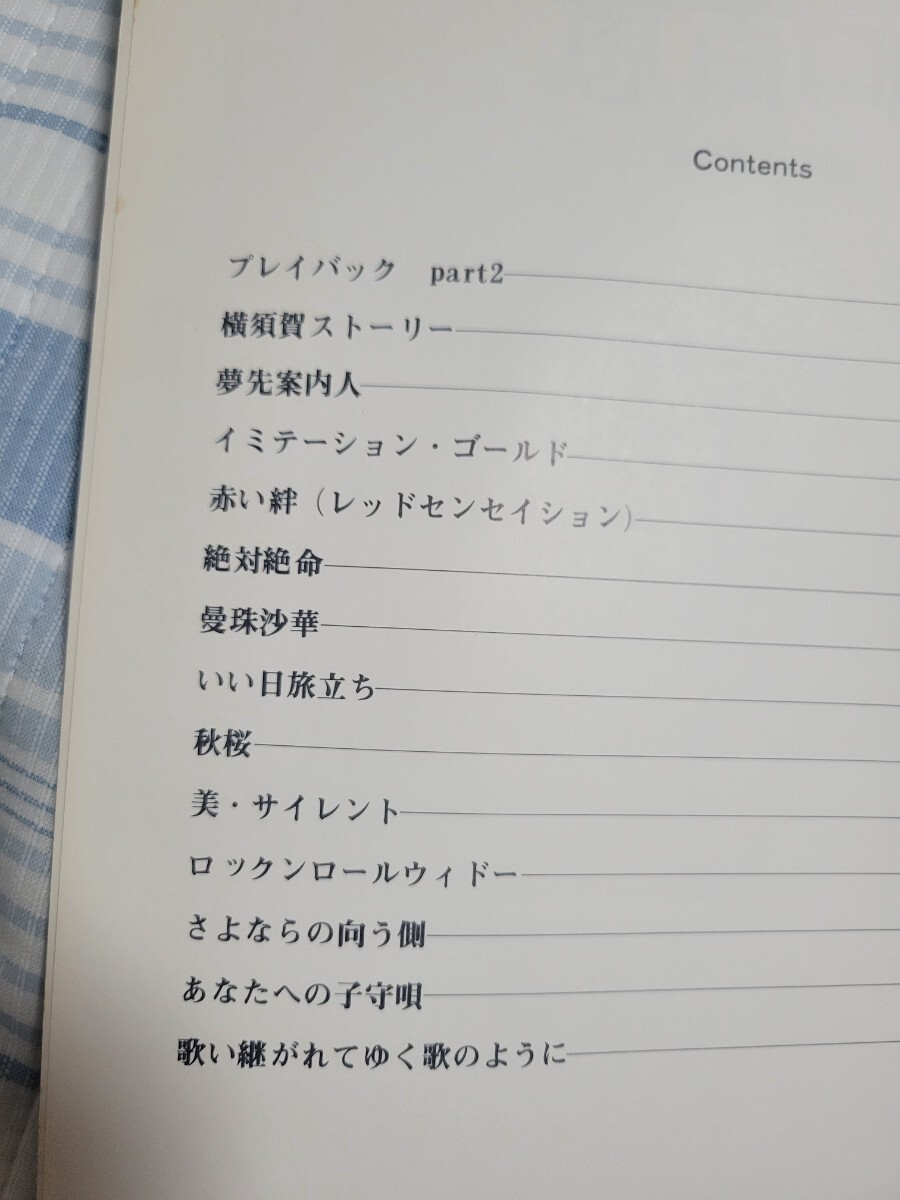 Contents
プレイバック part2
横須賀ストーリー
夢先案内人
イミテーション・ゴールド
赤い絆（レッドセンセイション）
絶対絶命
曼珠沙華
いい日旅立ち
秋桜
美・サイレント
ロックンロールウィドー
さよならの向う側
あなたへの子守唄
歌い継がれてゆく歌のように